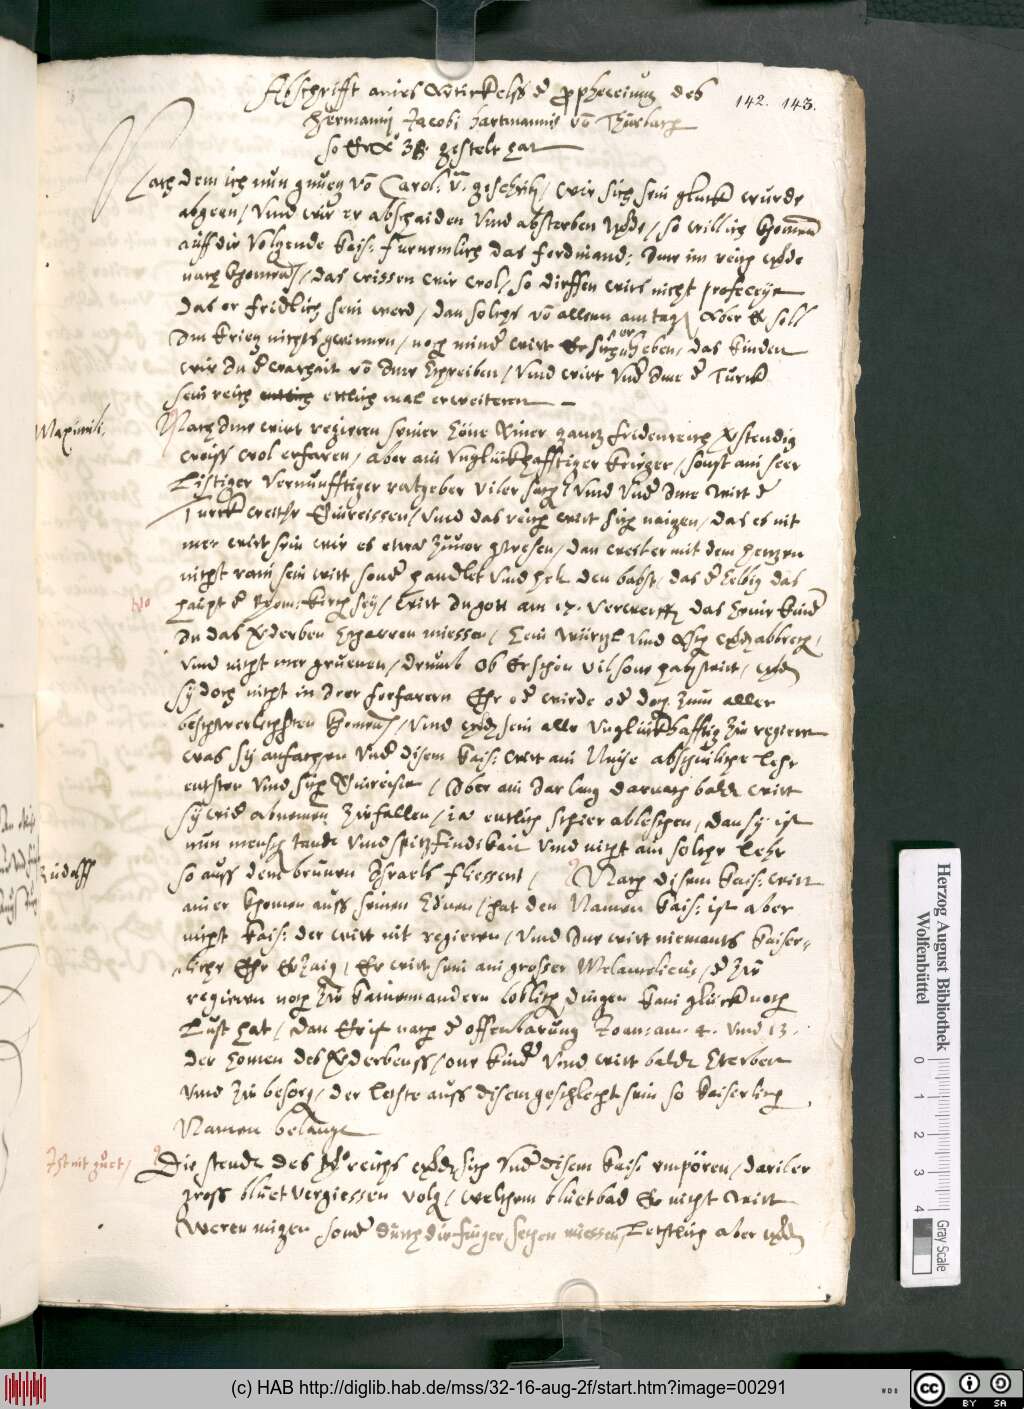 Abschrifft aines Artickelss d propheceiung des
142. 143.
Hermannj Jacobi Hartmannis võ Durlach
so Er A° 38. gestelt hat
Nach dem ich nun gnueg võ Carol: v. geschribn / wie sich sein gluckh wurde
abgeen / Vnnd wie er abschaiden Vnd absterben werde / so will ich khomen
auff die Volgende Kais: furnemlich das Ferdinand: Ime im reich werde
nach khomen / das wissen wir wol / so dirffen wirs nicht profeceyen
das er fridlich sein werd / dan solchs võ allem am tag / Aber Er soll
Im Krieg nichts gewinnen / noch minder wirt Er sich erheben / das kinden
wir In d warhait võ Ime schreiben / Vnnd wirt Vnd Ime d Turckh
sein reich ettlich mal erweiteren
Maximili:
Nach Ime wirt regieren seiner Söne Ainer gantz fridenreich / Verstendig
weiss wol erfaren / Aber ain Vnglückhafftiger Krieger / sonst ain seer
Listiger Vernunfftiger ratgeber viler sach / Vnnd Vnd Ime wirt d
Turckh weither Einreissen / Vnnd das reich wirt sich naigen / das es nit
mer wirt sein wie es etwa zuuor gwesen / dan weil er mit dem hertzen
nicht rain sein wirt sonder handlet Vnnd helt den babst / das d selbig das
haupt d Rom: Kirch sey / wirt In gott am 17. verwerffen das seine Kinder
In das Verderben scharren miessen / sein wurtzl Vnnd Esch werden abbrech /
Vnnd nicht mer gruenen / drumb Ob Er schon vil sone hab wirt / werden
sy doch nicht in Irer forfarern Ehr oder wirde oder doch zum aller
beschwerlichsten khomen / Vnnd werden sein alle Vnglückhafftig zu regieren
was sy anfachen Vnd disem Kais: wirt ain Neue abscheuliche Lehr
entsten Vnnd sich Einreisen / Aber ain Iar lang darnach bald wirt
sy wider abnemen zu fallen / ia entlich schier ableschen / dan sy ist
nun mensch tandt Vnnd spitzfindikait Vnnd nicht ain solche Lehr
Rudolff
so auss dem brunen Israels fliessent / Nach disem Kais: wirt
ainer khomen auss seinen Sönen / hat den Namen Kais: ist aber
nicht Kais: der wirt nit regieren / Vnnd Ime wirt niemants Kaiser-
liche Ehr Erzaig / Er wirt sein ain grosser Melancolicus / d zu
regieren noch zu kainem andern loblich dingen kain glückh noch
Lust hat / dan Er ist nach d offenbarung Joan: am. 4. Vnnd 13.
der somen des Verderbens / one kinder Vnnd wirt baldt sterben
Vnnd zu besorg / der letste auss disem geschlecht sein so Kaiserlich
Namen belangt
Ist nit guet /
Die stende des Ro: reichs werden sich Vnd disem Kais: empören / dariber
gross bluet vergiessen volg / welchem bluetbad Er nicht wirt
weren migen sonder durch die finger sechen miessen / Letstlich aber werden
Herzog August Bibliothek
Wolfenbüttel
0 1 2 3 4
Gray Scale
(c) HAB http://diglib.hab.de/mss/32-16-aug-2f/start.htm?image=00291
WDB
CC BY SA